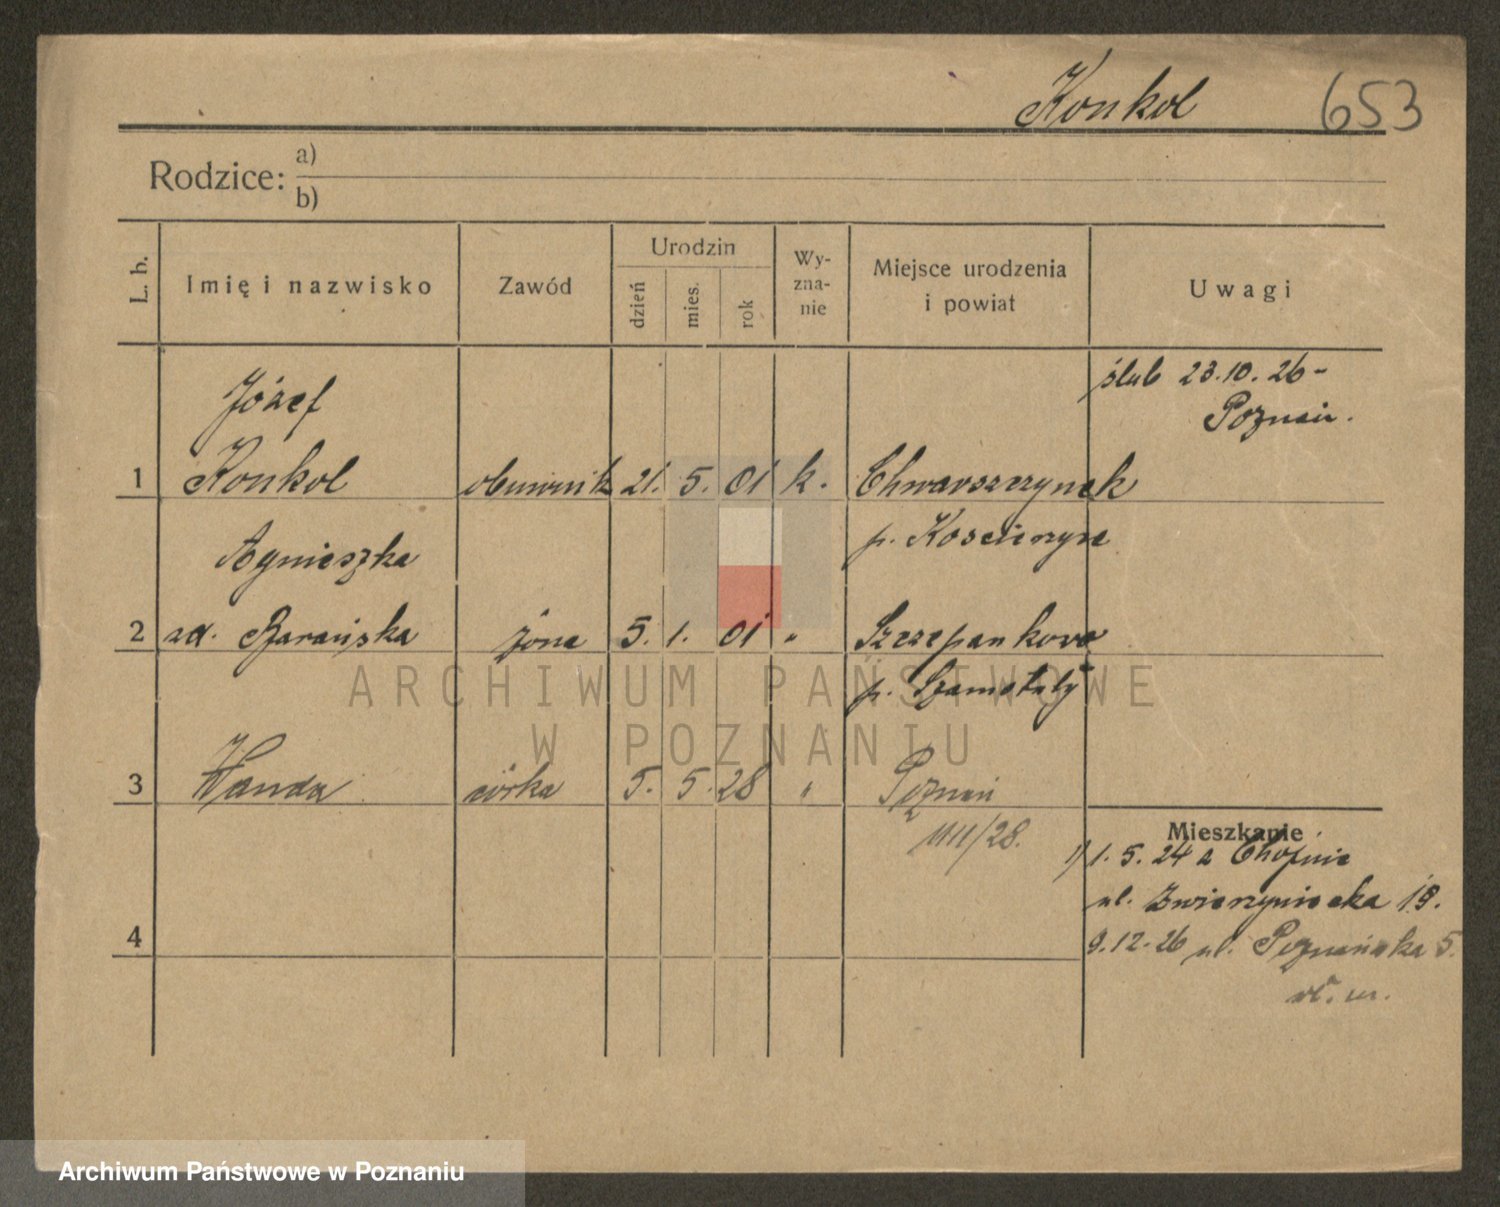 Konkol 653
Rodzice: a)
b)
L. b. Imię i nazwisko Zawód Urodzin dzień mies. rok Wyznanie Miejsce urodzenia i powiat Uwagi
ślub 23.10.26 -
Poznań.
Józef
1 Konkol obuwnik 21. 5. 01 k. Chwarszczynek
p. Kościerzyn
Agnieszka
2 zd. Barańska żona 5. 1. 01 " Szczepankovo
p. Szamotuły
3 Wanda córka 5. 5. 28 " Poznań
1111/28.
Mieszkanie
1) 1. 5. 24 z Chojnic
ul. Zwierzyniecka 19.
9.12.26 ul. Poznańska 5.
4
ARCHIWUM PAŃSTWOWE
W POZNANIU
Archiwum Państwowe w Poznaniu